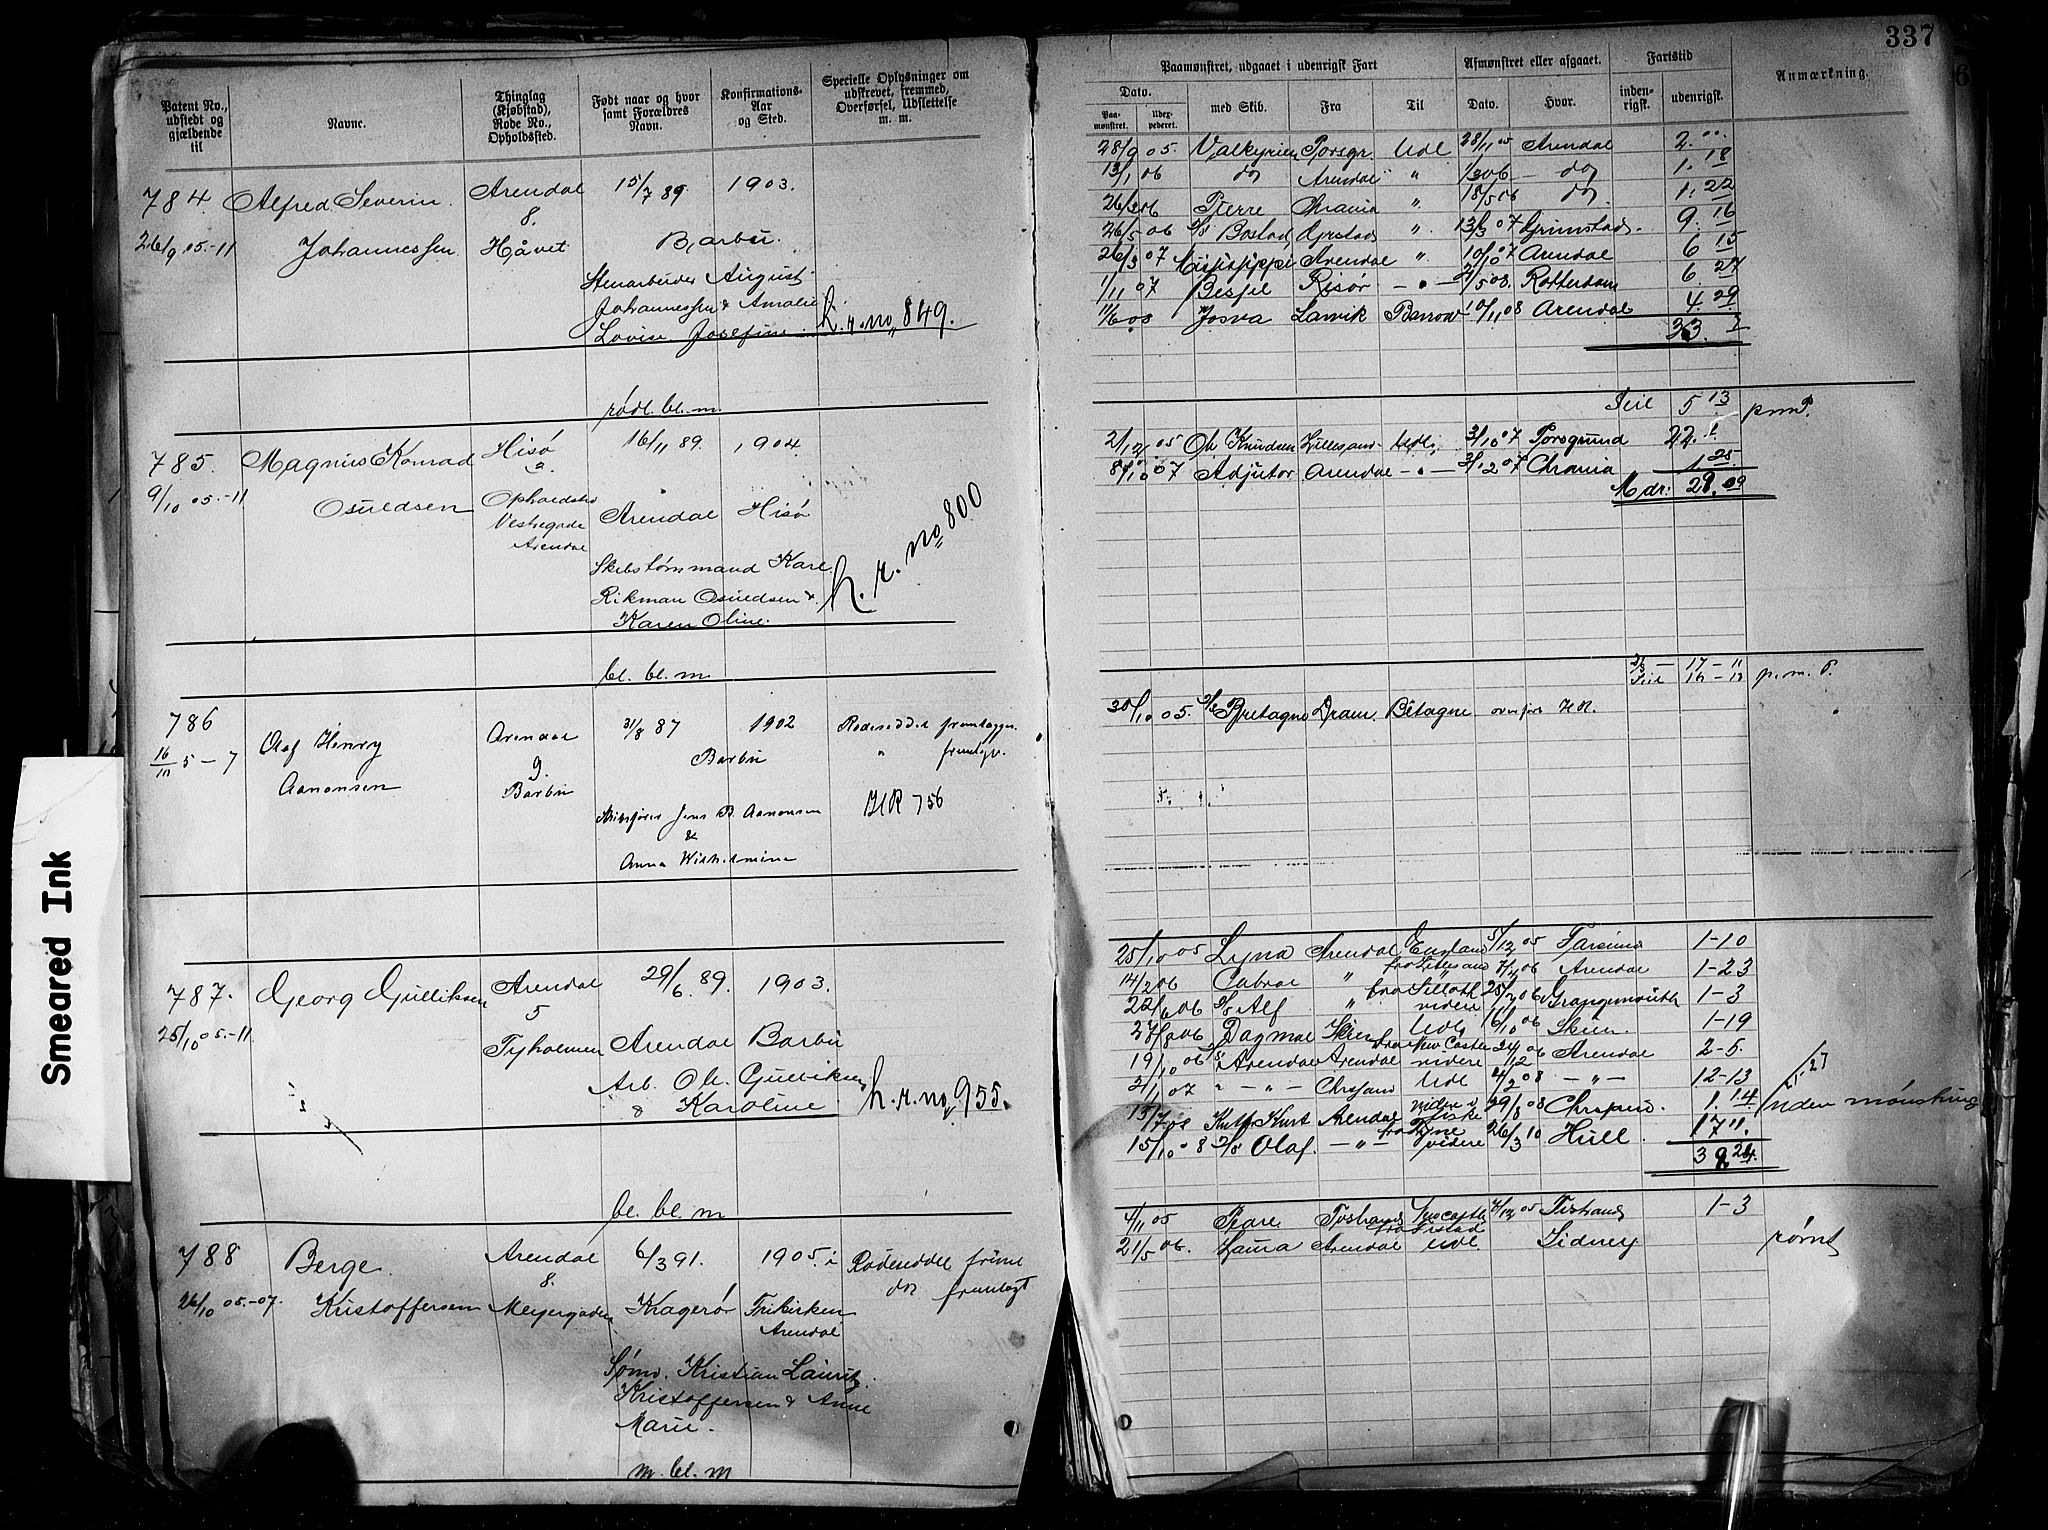 337
Patent No., udstedt og gjældende til
Navne.
Thinglag (Kjøbstad), Rode No., Opholdssted.
Født naar og hvor samt Forældres Navn.
Konfirmations- Aar og Sted.
Specielle Oplysninger om udskrevet, fremmed, Overførsel, Udslettelse m. m.
784. Alfred Severin Arendal 15/7 89 1903.
8.
26/9 05.-11 Johannessen Håvet Barbu.
Stenarbeider August
Johannessen & Amalie
Lovise Josefine. h.r.no 849.
rødl. bl. m.
785. Magnus Konrad Hisø 16/11 89. 1904.
2.
9/10 05.-11 Osuldsen Opholdsted Arendal Hisø
Vestregade
Arendal
Skibstømmand Karl
Rikman Osuldsen &
Karen Oline.
h.r.no 800
bl. bl. m.
786 Olaf Henry Arendal 31/8 87 1902 Rodeseddel fremlægges.
16/10 5-7 Aanonsen 9. Barbu " fremlagt.
Barbu
Skibsfører Jens B. Aanonsen HR 756
&
Anna Wilhelmine
787. Georg Gulliksen Arendal 29/6 89. 1903.
5
25/10 05.-11 Tyholmen Arendal Barbu
Arb. Ole Gulliksen
& Karoline h.r.no 955.
bl. bl. m
788 Berge Arendal 6/3 91. 1905. i Rodeseddel
8. do fremlagt
26/10 05.-07. Kristoffersen Meyergaden Kragerø Frikirken
Arendal
Sømd. Kristian Lauritz
Kristoffersen & Anne
Marie.
m. bl. m
Paamønstret, udgaaet i udenrigsk Fart
Afmønstret eller afgaaet.
Fartstid
Anmærkning.
Dato. med Skib. Fra Til Dato. Hvor. inden- rigsk. udenrigsk.
Paa- mønstret. Udex- pederet.
28/9 05. Valkyrien Porsgr. Udl 28/11 05 Arendal 2.00
13/1 06 do Arendal " 1/3 06 — do 1.18
26/3 06 Pierre Chrania " 18/5 06 do 1.22
26/5 06 Bostad Grstad " 13/3 07 Grimstad. 9.16
26/3 07 Missisippi Arendal " 10/10 07 Arendal 6 15
1/11 07 Besfil Risør — " — 27/5 08. Rotterdam 6.27
11/6 08 Josva Larvik Barrow 10/11 08 Arendal 4.29
33. 7
Seil 5 13 p.m.P.
2/12 05 Ole Knudsen Lillesand Udl. 3/10 07 Porsgrund 22.1
8/10 07 Adjutor Arendal — " — 3/12 07 Chrania 1.25
Mdr: 29.09
— 17 - 11
Seil p. m. P.
30/10 05. Bretagne Dram. Bétagne overført HR.
25/10 05 Lyna Arendal England 5/12 05 Farsund 1-10
14/2 06 Cabral " fra Lillesand Arendal 1-23
22/6 06 S/S Alf " fra Silloth videre 25/7 06 Grangemouth 1-3
27/8 06 Dagmal Skien Udl 16/10 06 Skien. 1-19
19/10 06 S/S Arendal Arendal fra New Castle videre 24/12 06 Arendal 2-5.
2/1 07 " - " - Chrsand Udl 4/2 08 — " — 12-13
15/7 08 Kurt Arendal 29/8 08 Chrsand. 1.14 uden mønstring
15/10 08 S/S Olaf. — " — fra Tyne videre 26/3 10 Hull. 17 11.
39 24.
4/11 05 Peare Tvestrand fra Grstad 7/12 05 Tvestrand 1-3
21/5 06. Laura Arendal Udl Sidney rømt
Smeared Ink